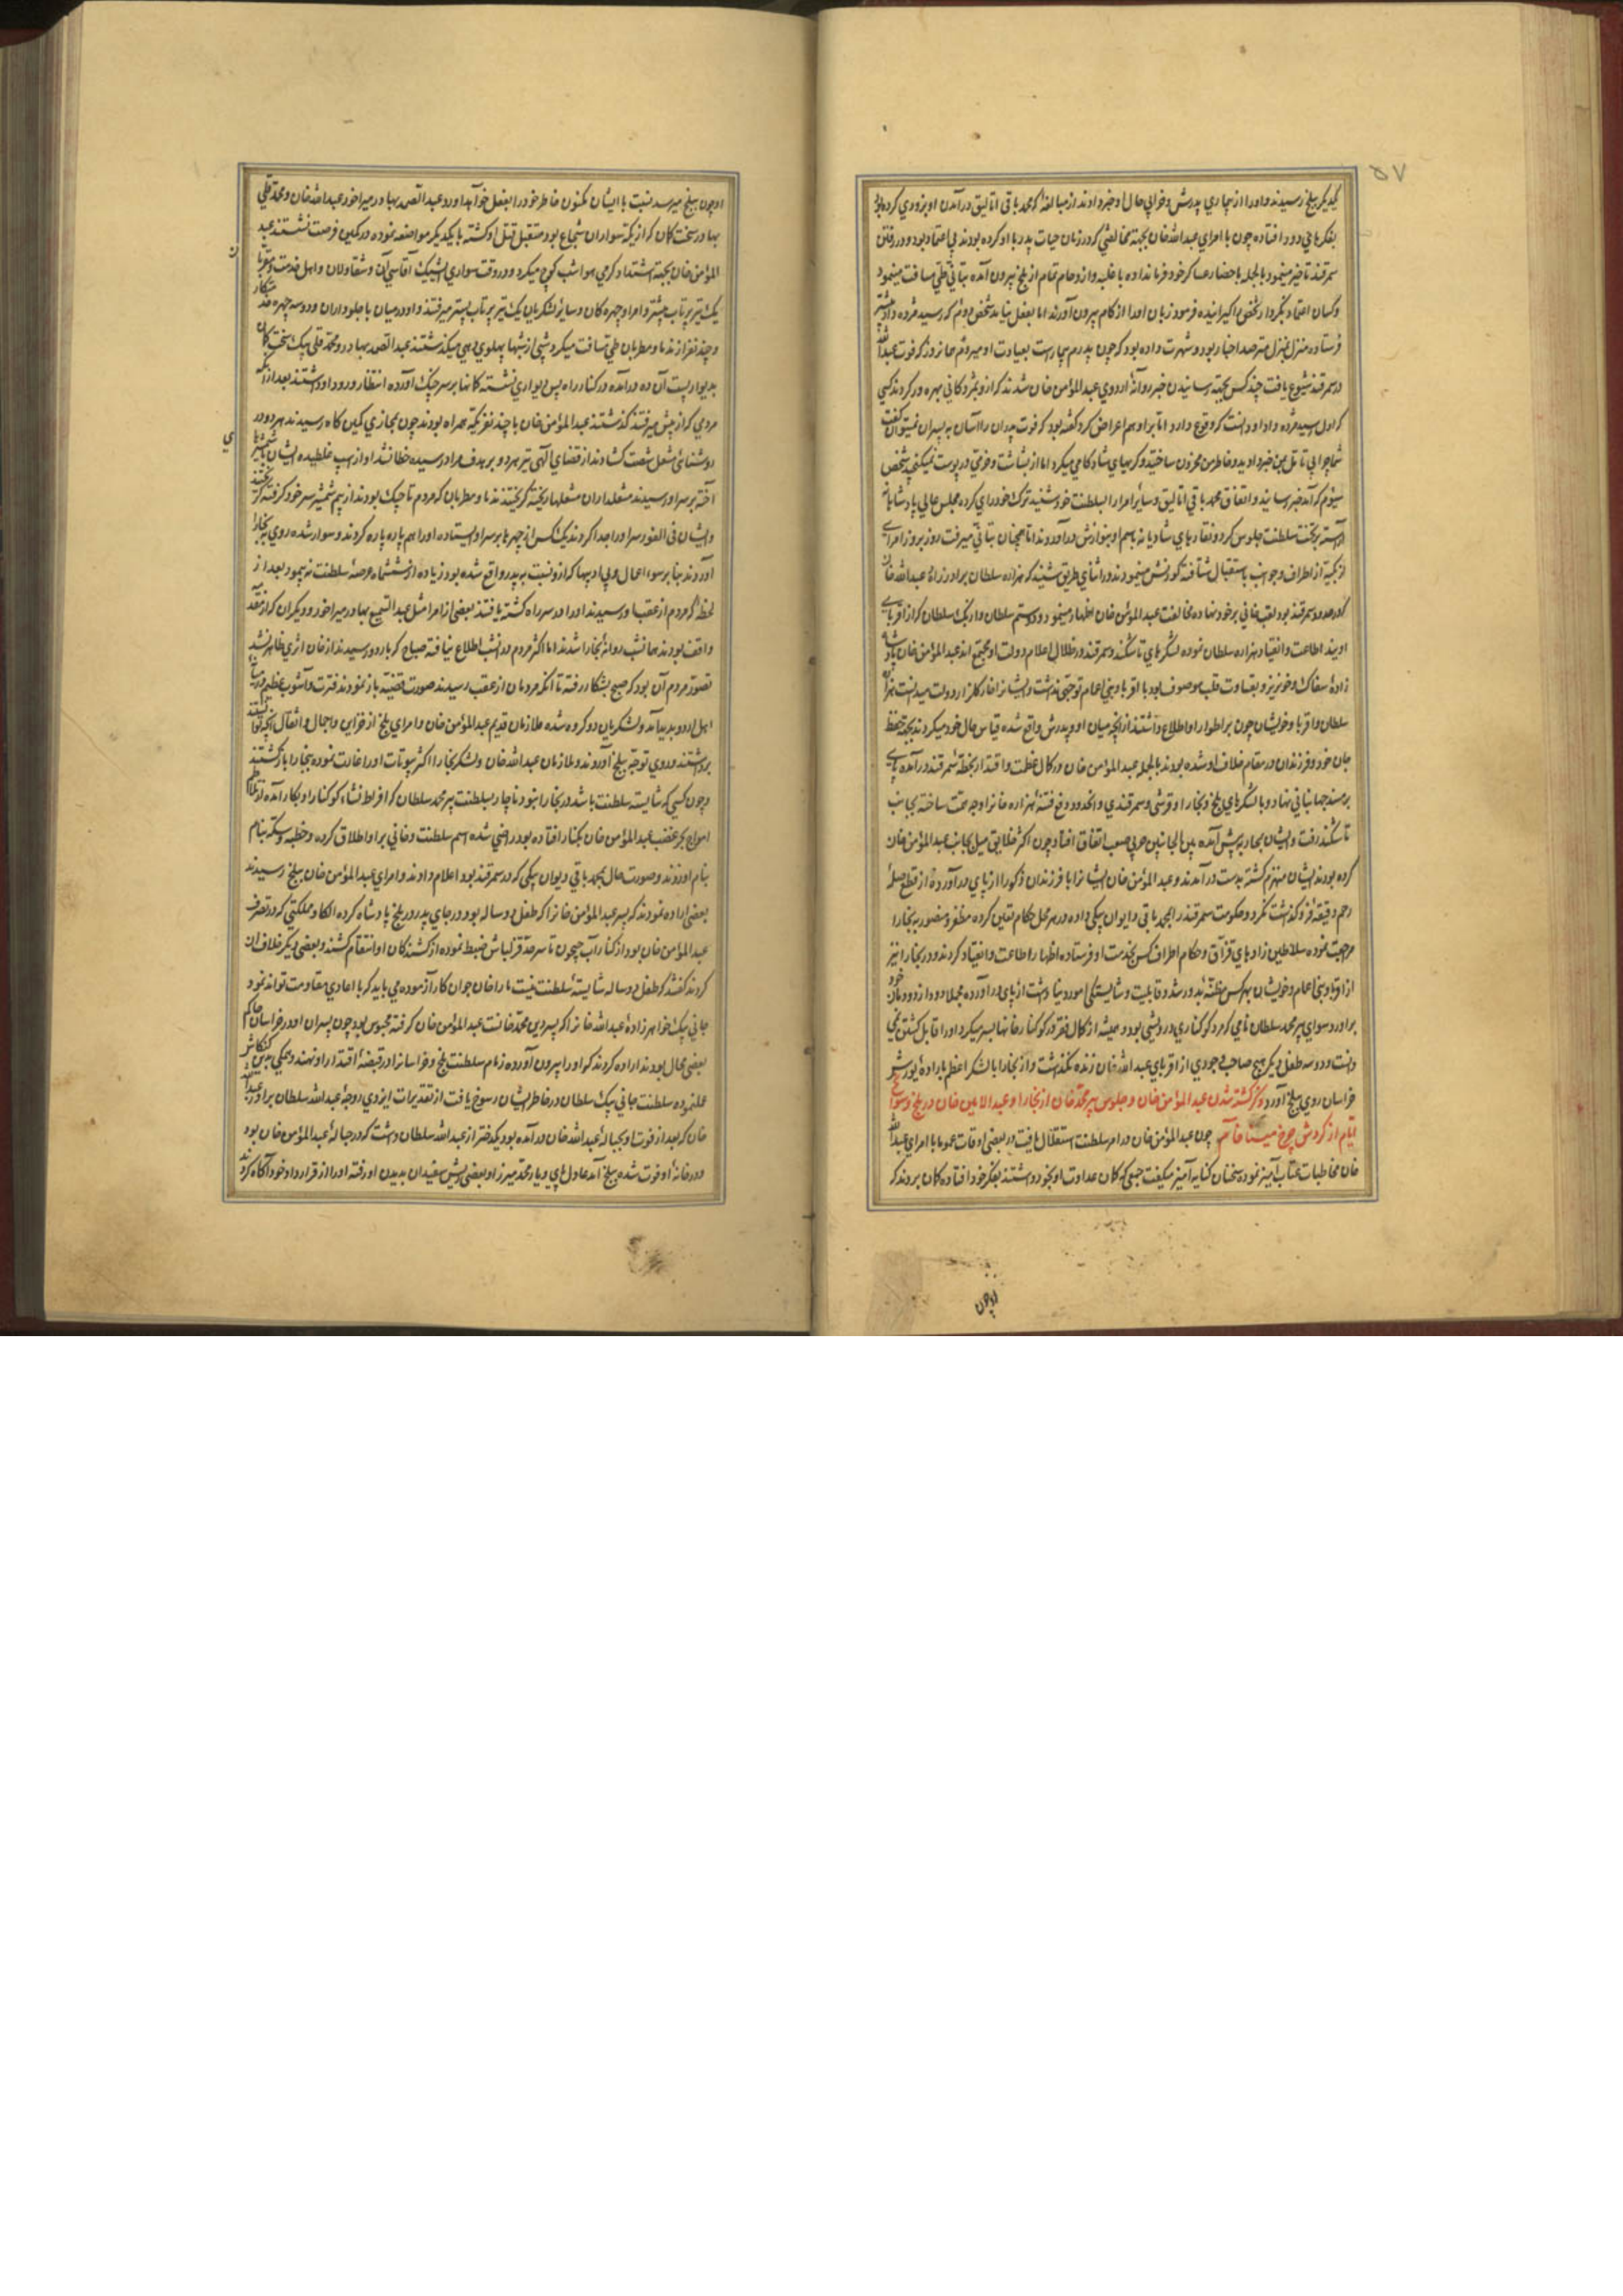 ۵۷
یکدیگر ببلخ رسیدند و او را از بیماری پدرش و خرابی حال او خبر دادند از مبالغهٔ که محمد باقی اتالیق در آمدن او بزودی کرده بود
بفکرهای دور افتاده چون با امرای عبدالله خان بجهة مخالفتی که در زمان حیات پدر با او کرده بودند بی اعتماد بود و در رفتن
سمرقند تاخیر مینمود بالجمله باحضار عساکر خود فرمان داده با غلبه و ازدحام تمام از بلخ بیرون آمده بتانی طی مسافت مینمود
فرستاده منزل بمنزل مترصد اخبار بود و شهرت داده بود که چون پدرم بیمار است بعیادت او میروم تا روزی که فوت عبدالله
در سمرقند شیوع یافت چند کس بجهة رسانیدن خبر روانهٔ اردوی عبدالمؤمن خان شدند که از و مژدکانی بهره ور کردند کسی
که اول رسید مژده داد او دانست که وقوع دارد اما بر او هم اعراض کرد گفته بود که فوت پدران را آسان به پسران نمیتوان گفت
سیوم که آمد خبر رسانید و اتفاق محمد باقی اتالیق و سایر امرا را بسلطنت خود شنید ترک خود رای کرده مجلس عالی پادشاهانه
آراسته بر تخت سلطنت جلوس کرد و نقارهای شادیانه باسم او بنوازش درآوردند اما همچنان بتانی میرفت روز بروز امرای
ازبکیه از اطراف و جوانب باستقبال شتافته کورنش مینمودند در اثنای طریق شنید که هزاره سلطان برادرزادهٔ عبدالله خان
که در حدود سمرقند بود لقب خانی بر خود نهاده مخالفت عبدالمؤمن خان اظهار مینمود و دوستم سلطان و ازبک سلطان که از اقربای
اویند اطاعت و انقیاد هزاره سلطان نموده لشکرهای تاشکند و سمرقند در ظلال اعلام دولت او مجتمع اند عبدالمؤمن خان پادشاه
زادهٔ سفاک و خونریز و بقساوت قلب موصوف بود با اقربا و بنی اعمام توجهی نداشت و ایشانرا خار گلزار دولت میدانست هزاره
سلطان و اقربا و خویشان چون بر اطوار او اطلاع داشتند از آنچه میان او و پدرش واقع شده قیاس حال خود میکردند بجهة حفظ
جان خود و فرزندان در مقام خلاف او شده بودند بالجمله عبدالمؤمن خان در کمال عظمت و اقتدار بخطهٔ سمرقند درآمده پای
بر مسند جهانبانی نهاد و با لشکرهای بلخ و بخارا و قرشی و سمرقندی و انحدود دفع فتنهٔ هزاره خانرا وجه همت ساخته بجانب
تاشکند رفت و ایشان بمحاربه پیش آمده بین الجانبین حربی صعب اتفاق افتاد چون اکثر خلایق میل بجانب عبدالمؤمن خان
کرده بودند ایشان منهزم گشته بدست درآمدند و عبدالمؤمن خان ایشانرا با فرزندان ذکور از پای درآورده از قطع صلهٔ
رحم دقیقهٔ فروگذاشت نکرد و حکومت سمرقند را بمحمد باقی دیوان بیکی داده در هر محل حکام تعیین کرده مظفر و منصور به بخارا
مراجعت نموده سلاطین زادهای قزاق و حکام اطراف کس بخدمت او فرستاده اظهار اطاعت و انقیاد کردند و در بخارا نیز
از اقربا و بنی اعمام و خویشان بهر کس مظنهٔ رشد و قابلیت و شایستگی امور دنیا داشت از پای درآورده مجملا در دودمان خود
برادر و سوای پیر محمد سلطان نامی که مرد کوکناری درویشی بود و همیشه از کمال فقر در کوکنارخانها بسر میکرد او را قابل کشتن نمی
دانست و دو سه طفل دیگر هیچ صاحب وجودی از اقربای عبدالله خان زنده نگذاشت و از بخارا با لشکر اعظم بارادهٔ یورش
خراسان روی ببلخ آورد ذکر کشته شدن عبدالمؤمن خان و جلوس پیر محمد خان در بخارا و عبدالامین خان در بلخ و سوانح
ایام از گردش چرخ مینا فام چون عبدالمؤمن خان در امر سلطنت استقلال یافت در بعضی اوقات عموما با امرای عبدالله
خان مخاطبات عتاب آمیز نموده سخنان کنایه آمیز میگفت جمعی که گمان عداوت او بخود داشتند بفکر خود افتاده گمان بردند که
او چون
او چون ببلخ میرسد نسبت با ایشان مکنون خاطر خود را بفعل خواهد آورد عبدالصمد بهادر میراخور عبدالله خان و محمد قلی
بهادر سخت کمان که از یکه سواران شجاع بود متقبل قتل او گشته با یکدیگر مواضعه نموده در کمین فرصت نشستند عبد
المؤمن خان بجهة اشتداد گرمی هوا شب کوچ میکرد و در وقت سواری ایشیک آقاسی آن و شقاولان و اهل خدمت و مقربان
یک تیر پرتاب پیشتر و امرا و چهرکان و سایر لشکریان یک تیر پرتاب پستر میرفتند و او در میان با جلوداران و دو سه چهره
و چند نفر از ندما و مطربان طی مسافت میکرد شبی از شبها پهلوی دهی میگذشتند عبدالصمد بهادر و محمد قلی بیک سخت کمان
بدیوار بست آن ده درآمده در کنار راه پس دیواری نشسته کمانها بر سر چنگ آورده انتظار ورود او داشتند بعد از آنکه
مردمی که از پیش میرفتند گذشتند عبدالمؤمن خان با چند نفر یکه همراه بودند چون بمحاذی کمین گاه رسیدند هر دو در
روشنائی مشعل شصت گشادند از قضای الهی تیر هر دو بر هدف مراد رسیده خطا نشد او از اسب غلطیده ایشان شمشیرها
آخته بر سر او رسیدند مشعلداران مشعلها ریخته گریختند ندما و مطربان که مردم تاجیک بودند از بیم شمشیر سر خود گرفته گریختند
و ایشان فی الفور سر او را جدا کردند یک کس از چهرها بر سر او ایستاده او را هم پاره پاره کردند و سوار شده روی به بخارا
آوردند بنابر سوء اعمال و بی ادبیها که ازو نسبت به پدر واقع شده بود زیاده از ششماه عرصهٔ سلطنت نه پیمود بعد از
لحظهٔ که مردم از عقب او رسیدند او را در سر راه کشته یافتند بعضی از امرا مثل عبدالسمیع بهادر میراخور و دیگران که ازین مقدمه
واقف بودند همانشب روانهٔ بخارا شدند اما اکثر مردم در آنشب اطلاع نیافته صباح که باردو رسیدند از خان اثری ظاهر نشد
تصور مردم آن بود که صبح بشکار رفته تا آنکه مردمان از عقب رسیدند صورت قضیه باز نمودند فترت و آشوب عظیم در میان
اهل اردو پدید آمد و لشکریان دو گروه شده ملازمان قدیم عبدالمؤمن خان و امرای بلخ از خزاین و احمال و اثقال آنچه توانستند
برداشتند و روی توجه ببلخ آوردند و ملازمان عبدالله خان و لشکر بخارا اکثر بیوتات او را غارت نموده ببخارا بازگشتند
و چون کسی که شایسته سلطنت باشد در بخارا نبود ناچار بسلطنت پیر محمد سلطان که از افراط نشاء کوکنار او بکار آمده از تلاطم
امواج بحر غضب عبدالمؤمن خان بکنار افتاده بود راضی شده اسم سلطنت و خانی بر او اطلاق کرده و خطبه و سکه بنام
بنام او زدند و صورت حال بمحمد باقی دیوان بیکی که در سمرقند بود اعلام دادند و امرای عبدالمؤمن خان ببلخ رسیدند
بعضی اراده نمودند که پسر عبدالمؤمن خانرا که طفل دو ساله بود در جای پدر در بلخ پادشاه کرده الکا و مملکتی که در تصرف
عبدالمؤمن خان بود از کنار آب جیحون تا سرحد قزلباش ضبط نموده از کشندگان او انتقام کشند و بعضی دیگر خلاف آن
کردند گفتند که طفل دو ساله شایستهٔ سلطنت نیست ما را خان جوان کارآزموده می باید که با اعادی مقاومت تواند نمود
جانی بیک خواهرزادهٔ عبدالله خانرا که پسر دین محمد خانست عبدالمؤمن خان گرفته محبوس بود چون پسران او در خراسان حاکم
بعضی محال بودند اراده کردند که او را بیرون آورده زمام سلطنت بلخ و خراسانرا در قبضهٔ اقتدار او نهند و همگی برین کنکاش
عمل نموده سلطنت جانی بیک سلطان در خاطر ایشان رسوخ یافت از تقدیرات ایزدی زوجهٔ عبدالله سلطان برادر عبدالله
خان که بعد از فوت او بحبالهٔ عبدالله خان درآمده بود و یکدختر از عبدالله سلطان داشت که در حبالهٔ عبدالمؤمن خان بود
و در خانهٔ او فوت شده ببلخ آمد عادل بای و یار محمد میرزا و بعضی ریش سفیدان بدیدن او رفته او را از قرارداد خود آگاه کردند